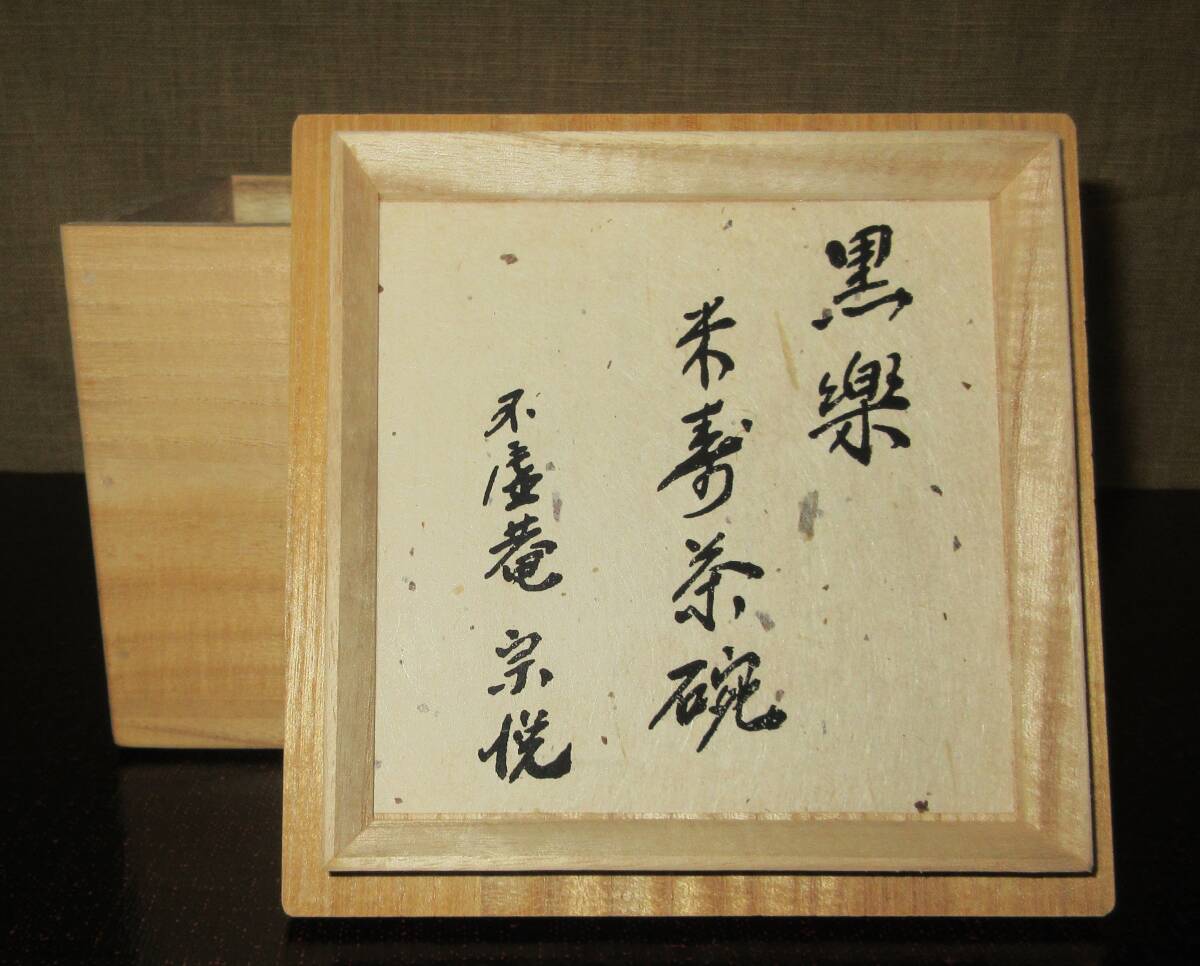 黒樂
米寿茶碗
不虚菴 宗悦